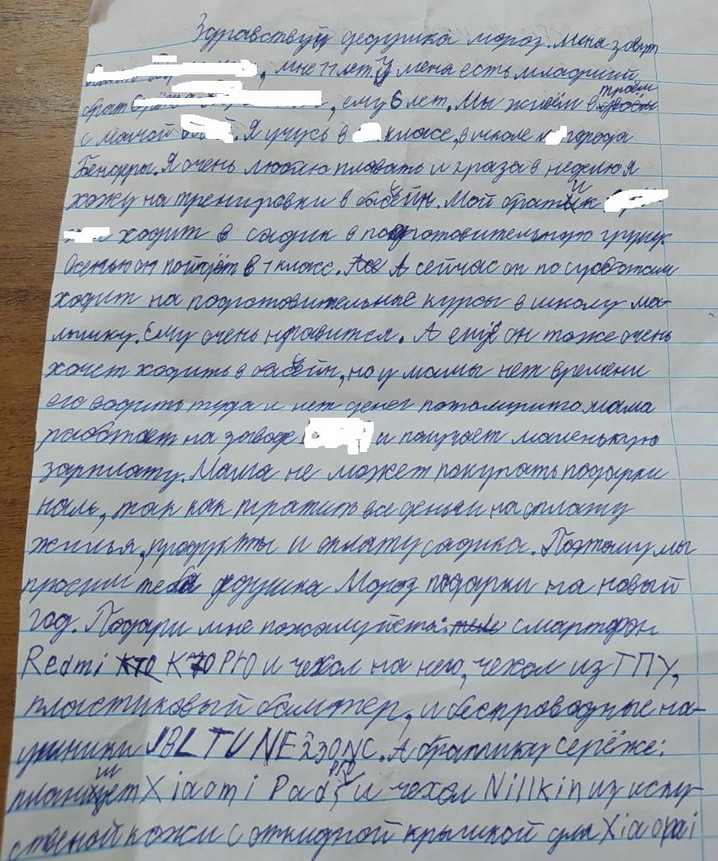 Здравствуй дедушка мороз. Меня зовут
, мне 11 лет. У меня есть младший
брат , ему 6 лет. Мы живём в троём
с мамой . Я учусь в класс, в школе города
Бендеры. Я очень люблю плавать и 2 раза в неделю я
хожу на тренировки в бассейн. Мой братик
ходит в садик в подготовительную групу.
Осенью он пойдёт в 1 класс. А сейчас он по субботам
ходит на подготовительные курсы в школу ма-
лышку. Ему очень нравится. А ещё он тоже очень
хочет ходить в бассейн, но у мамы нет времени
его водить туда и нет денег потомучто мама
работает на заводе и получает маленькую
зарплату. Мама не может покупать подарки
нам, так как тратит все деньги на оплату
жилья, продукты и оплату садика. Поэтому мы
просим тебя дедушка Мороз подарки на новый
год. Подари мне пожалуйста: смартфон
Redmi K70 Pro и чехол на него, чехол из ТПУ,
пластиковый бампер, и беспроводные на-
ушники JBL TUNE 230NC. А братику серёже:
планшет Xiaomi Pad и чехол Nillkin из иску-
ственой кожи с откидной крышкой для